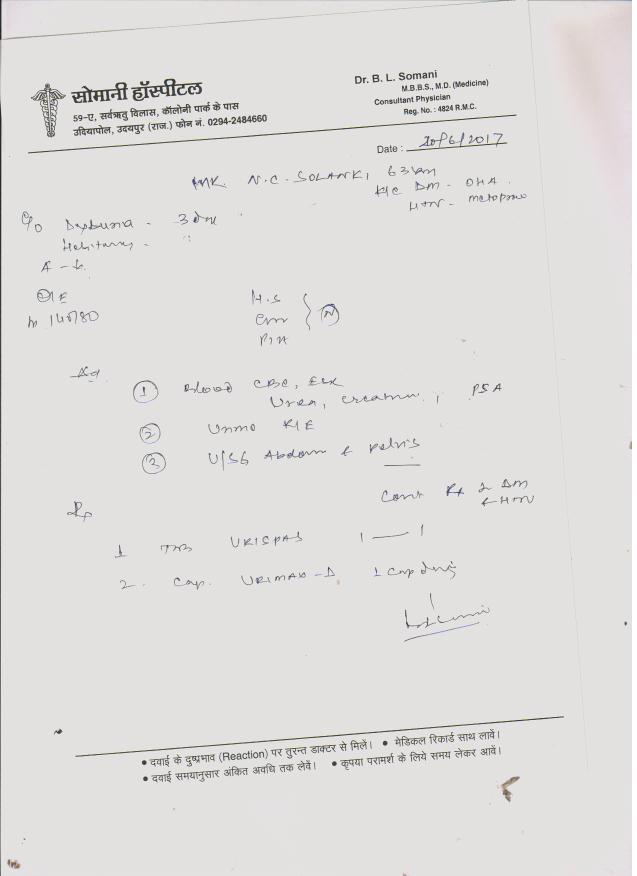 सोमानी हॉस्पीटल
59-ए, सर्वऋतु विलास, कॉलोनी पार्क के पास
उदियापोल, उदयपुर (राज.) फोन नं. 0294-2484660
Dr. B. L. Somani
M.B.B.S., M.D. (Medicine)
Consultant Physician
Reg. No. : 4824 R.M.C.
Date : 20/6/2017
MR. N.C. SOLANKI, 63
K/C DM - OHA
HTN -
C/O - 3
A -
O/E
140/80
H.S
P/A
N
1 Blood CBC, ESR
Urea, , PSA
2 R/E
3 U/SG Abdom & Pelvis
Cont Rx DM
& HTN
Rx
1 TAB URISPAS 1 — 1
2. Cap. URIMAX-D 1 Cap daily
• दवाई के दुष्प्रभाव (Reaction) पर तुरन्त डाक्टर से मिलें। • मेडिकल रिकार्ड साथ लावें।
• दवाई समयानुसार अंकित अवधि तक लेवें। • कृपया परामर्श के लिये समय लेकर आवें।